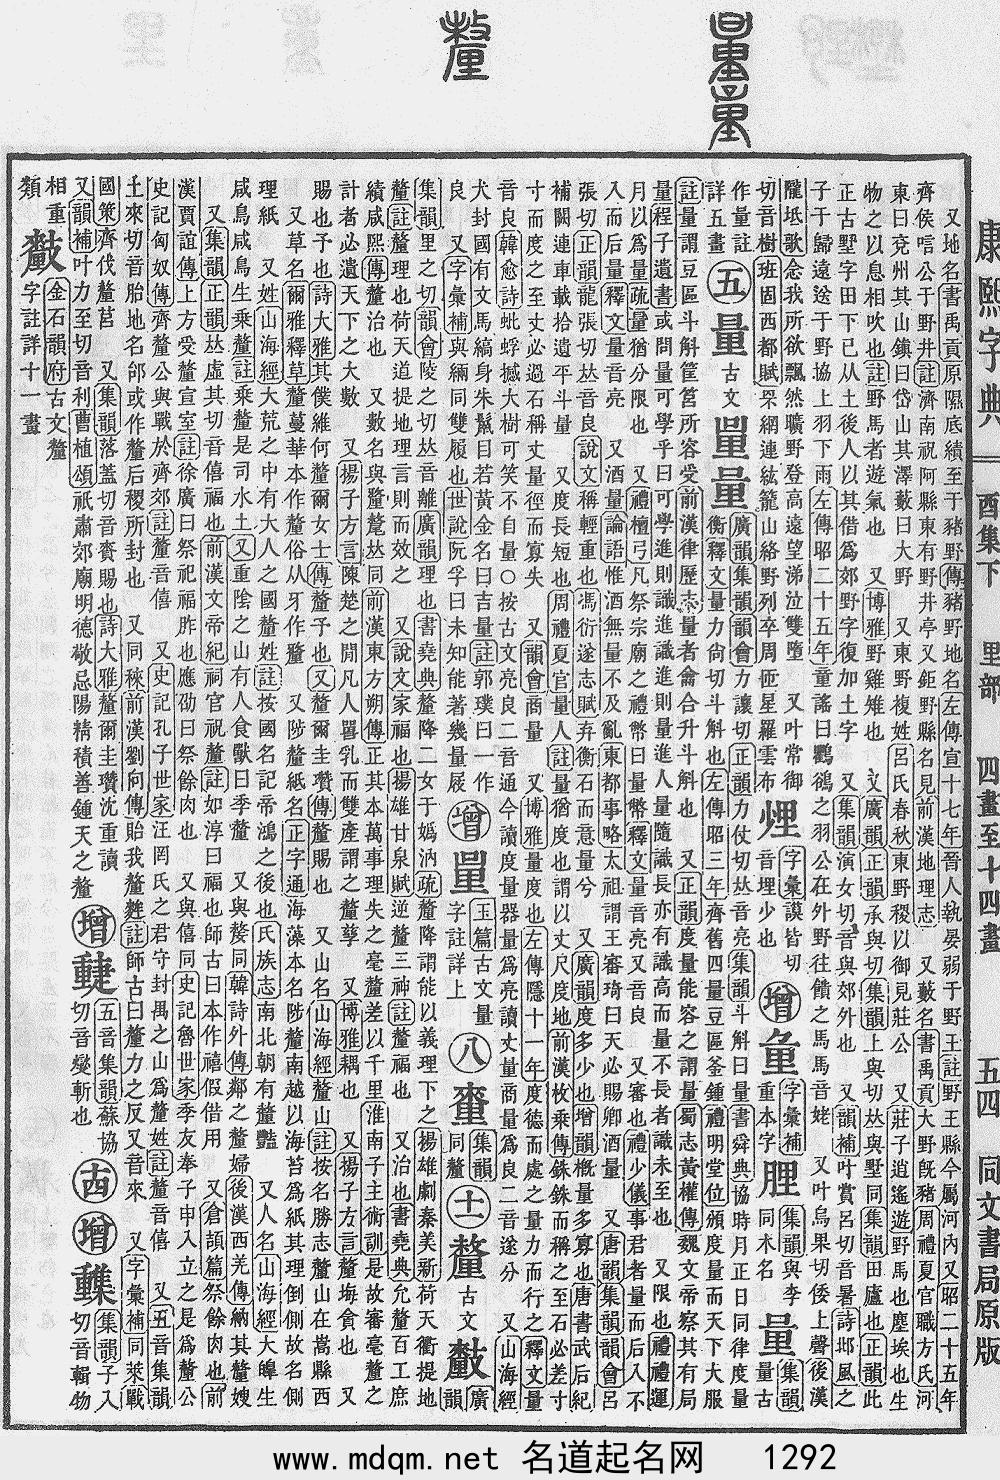 康熙字典 酉集下 里部 四畫至十四畫 五四 同文書局原版
又地名書禹貢原隰底績至于豬野傳豬野地名左傳宣十七年晉人執晏弱于野王註野王縣今屬河內又昭二十五年
齊侯唁公于野井註濟南祝阿縣東有野井亭又鉅野縣名見前漢地理志 又藪名書禹貢大野旣豬周禮夏官職方氏河
東曰兗州其山鎭曰岱山其澤藪曰大野 又東野複姓呂氏春秋東野稷以御見莊公 又莊子逍遙遊野馬也塵埃也生
物之以息相吹也註野馬者遊氣也 又博雅野雞雉也 又廣韻正韻承與切集韻上與切𠀤與墅同集韻田廬也正韻此
正古墅字田下已从土後人以其借爲郊野字復加土字 又集韻演女切音與郊外也 又韻補叶賞呂切音暑詩邶風之
子于歸遠送于野協上羽下雨左傳昭二十五年童謠曰鸜鵒之羽公在外野往饋之馬馬音姥 又叶烏果切倭上聲後漢
隴坻歌念我所欲飄然曠野登高遠望涕泣雙墮 又叶常御
切音樹班固西都賦罘網連紘籠山絡野列卒周匝星羅雲布 字彙謨皆切音埋少也 增 字彙補重本字 集韻與李同木名 量 集韻量古
作量註詳五畫 五 量 古文 廣韻集韻韻會力讓切正韻力仗切𠀤音亮集韻斗斛曰量書舜典協時月正日同律度量
衡釋文量力尙切斗斛也左傳昭三年齊舊四量豆區釜鍾禮明堂位頒度量而天下大服
註量謂豆區斗斛筐筥所容受前漢律歷志量者龠合升斗斛也 又正韻度量能容之謂量蜀志黃權傳魏文帝察其有局
量程子遺書或問量可學乎曰可學進則識進識進則量進人量隨識長亦有識高而量不長者識未至也 又限也禮禮運
月以爲量疏量猶分限也 又禮檀弓凡祭宗廟之禮幣曰量幣釋文量音亮又音良 又審也禮少儀事君者量而后入不
入而后量釋文量音亮 又酒量論語惟酒無量不及亂東都事略太祖謂王審琦曰天必賜卿酒量 又唐韻集韻韻會呂
張切正韻龍張切𠀤音良說文稱輕重也馮衍遂志賦弃衡石而意量兮 又廣韻度多少也增韻槪量多寡也唐書武后紀
補闕連車載拾遺平斗量 又度長短也周禮夏官量人註量猶度也謂以丈尺度地前漢枚乘傳銖銖而稱之至石必差寸
寸而度之至丈必過石稱丈量徑而寡失 又韻會商量 又博雅量度也左傳隱十一年度德而處之量力而行之釋文量
音良韓愈詩蚍蜉撼大樹可笑不自量○按古文亮良二音通今讀度量器量爲亮讀丈量商量爲良二音遂分 又山海經
犬封國有文馬縞身朱鬣目若黃金名曰吉量註郭璞曰一作
良 又字彙補與緉同雙履也世說阮孚曰未知能著幾量屐 增 玉篇古文量字註詳上 八 集韻同釐 十一 釐 古文 廣韻
集韻里之切韻會陵之切𠀤音離廣韻理也書堯典釐降二女于嬀汭疏釐降謂能以義理下之揚雄劇秦美新荷天衢提地
釐註釐理也荷天道提地理言則而效之 又說文家福也揚雄甘泉賦逆釐三神註釐福也 又治也書堯典允釐百工庶
績咸熙傳釐治也 又數名與氂𠀤同前漢東方朔傳正其本萬事理失之毫釐差以千里淮南子主術訓是故審毫釐之
計者必遺天下之大數 又揚子方言陳楚之閒凡人嘼乳而雙產謂之釐孳 又博雅耦也 又揚子方言釐坶貪也 又
賜也予也詩大雅其僕維何釐爾女士傳釐予也又釐爾圭瓚傳釐賜也 又山名山海經釐山註按名勝志釐山在嵩縣西
又草名爾雅釋草釐蔓華本作釐俗从牙作釐 又陟釐紙名正字通海藻本名陟釐南越以海苔爲紙其理倒側故名側
理紙 又姓山海經大荒之中有大人之國釐姓註按國名記帝鴻之後也氏族志南北朝有釐豔 又人名山海經大皥生
咸鳥咸鳥生乘釐註乘釐是司水土又重陰之山有人食獸曰季釐 又與嫠同韓詩外傳鄰之釐婦後漢西羌傳納其釐嫂
又集韻正韻𠀤虛其切音僖福也前漢文帝紀祠官祝釐註如淳曰福也師古曰本作禧假借用 又倉頡篇祭餘肉也前
漢賈誼傳上方受釐宣室註徐廣曰祭祀福胙也應劭曰祭餘肉也 又與僖同史記魯世家季友奉子申入立之是爲釐公
史記匈奴傳齊釐公與戰於齊郊註釐音僖 又史記孔子世家汪罔氏之君守封禺之山爲釐姓註釐音僖 又五音集韻
土來切音胎地名邰或作釐后稷所封也 又同䅘前漢劉向傳貽我釐麰註師古曰釐力之反又音來 又字彙補同萊戰
國策齊伐釐莒 又集韻落蓋切音賚賜也詩大雅釐爾圭瓚沈重讀
又韻補叶力至切音利曹植頌祇肅郊廟明德敬忌陽精積善鍾天之釐 增 五音集韻蘇協切音燮斬也 古增 集韻子入切音輯物
相重 金石韻府古文釐字註詳十一畫
類
www.mdqm.net 名道起名网 1292